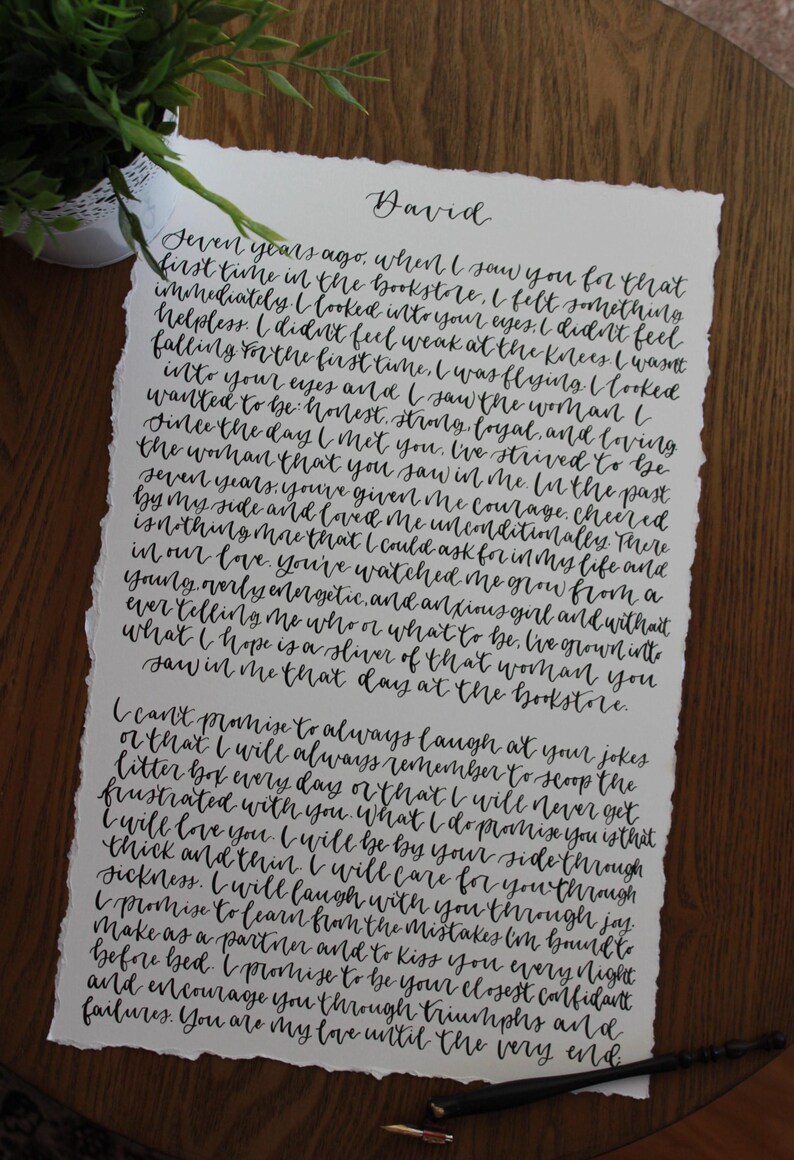 David
Seven years ago, when I saw you for that
first time in the bookstore, I felt something
immediately. I looked into your eyes, I didn't feel
helpless. I didn't feel weak at the knees. I wasn't
falling. For the first time, I was flying. I looked
into your eyes and I saw the woman I
wanted to be: honest, strong, loyal, and loving
since the day I met you, I've strived to be
the woman that you saw in me. In the past
seven years, you've given me courage, cheered
by my side and loved me unconditionally. There
is nothing more that I could ask for in my life and
in our love. You've watched me grow from a
young, overly energetic, and anxious girl and without
ever telling me who or what to be, I've grown into
what I hope is a sliver of that woman you
saw in me that day at the bookstore.
I can't promise to always laugh at your jokes
or that I will always remember to scoop the
litter box every day or that I will never get
frustrated with you. What I do promise you is that
I will love you. I will be by your side through
thick and thin. I will care for you through
sickness. I will laugh with you through joy.
I promise to learn from the mistakes I'm bound to
make as a partner and to kiss you every night
before bed. I promise to be your closest confidant
and encourage you through triumphs and
failures. You are my love until the very end.